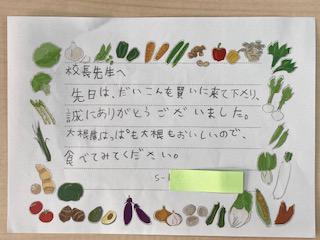 校長先生へ
先日は、だいこんを買いに来て下さり、
誠にありがとうございました。
大根葉はっぱも大根もおいしいので、
食べてみてください。
5-1